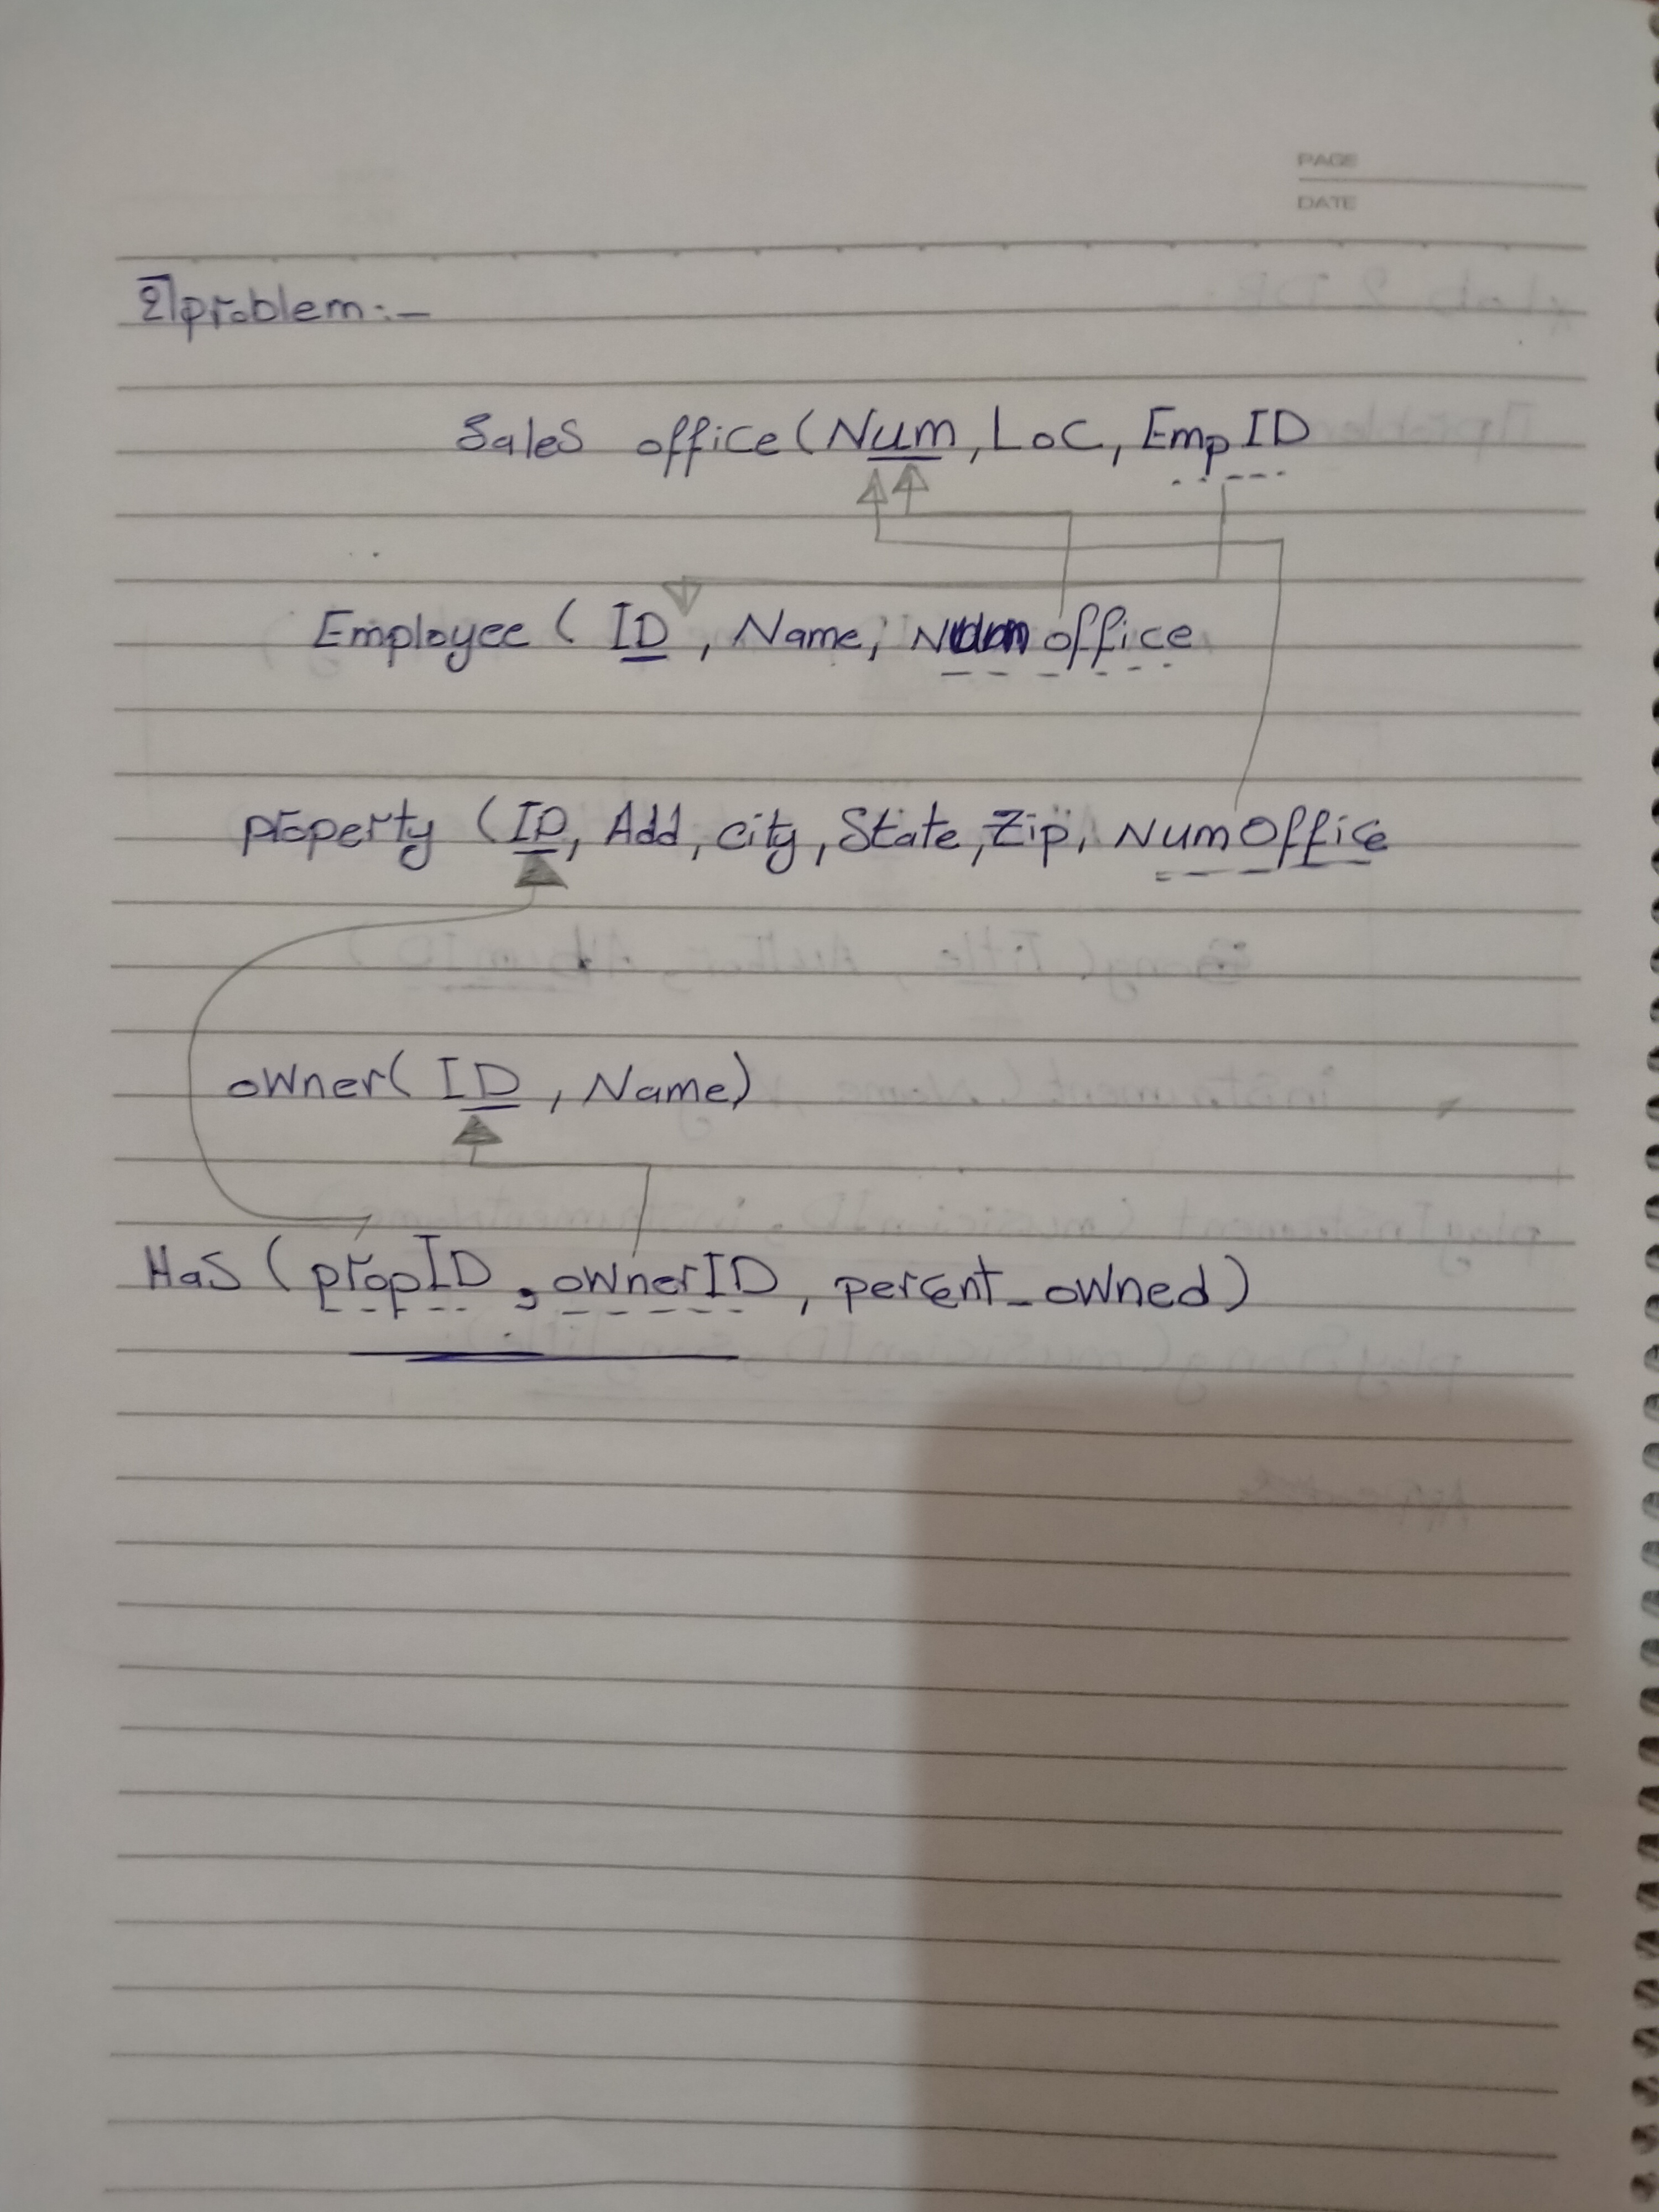 PAGE
DATE
2] problem:-
Sales office (Num, Loc, Emp ID
Employee ( ID, Name, Num office
property (ID, Add, city, State, Zip, NumOffice
owner( ID, Name)
Has (propID, ownerID, percent_owned)